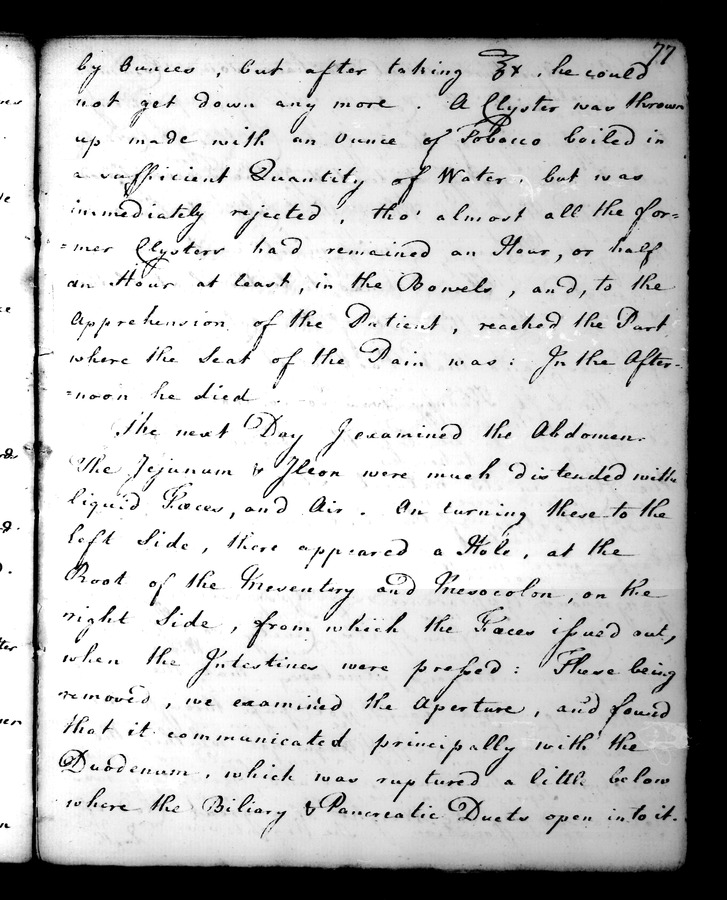 77
by Ounces, but after taking ℥x, he could
not get down any more. A Clyster was thrown
up made with an Ounce of Tobacco boiled in
a sufficient Quantity of Water, but was
immediately rejected, tho' almost all the for=
=mer Clysters had remained an Hour, or half
an Hour at least, in the Bowels, and, to the
Apprehension of the Patient, reached the Part
where the Seat of the Pain was: In the After-
=noon he died.
The next Day I examined the Abdomen.
The Jejunum & Ileon were much distended with
liquid Fæces, and Air. On turning these to the
left Side, there appeared a Hole, at the
Root of the Mesentery and Mesocolon, on the
right Side, from which the Fæces issued out,
when the Intestines were pressed: These being
removed, we examined the Aperture, and found
that it communicated principally with the
Duodenum, which was ruptured a little below
where the Biliary & Pancreatic Ducts open into it.